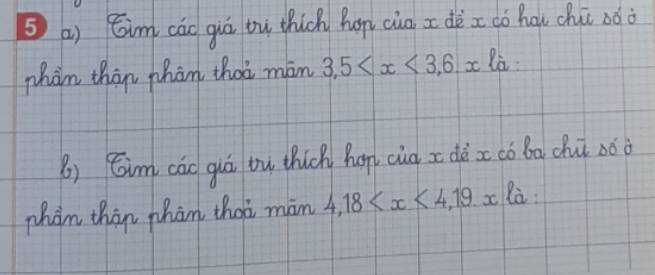 5 a) Tìm các giá trị thích hợp của x để x có hai chữ số ở
phần thập phân thoả mãn 3,5 < x < 3,6 x là:
b) Tìm các giá trị thích hợp của x để x có ba chữ số ở
phần thập phân thoả mãn 4,18 < x < 4,19 x là: